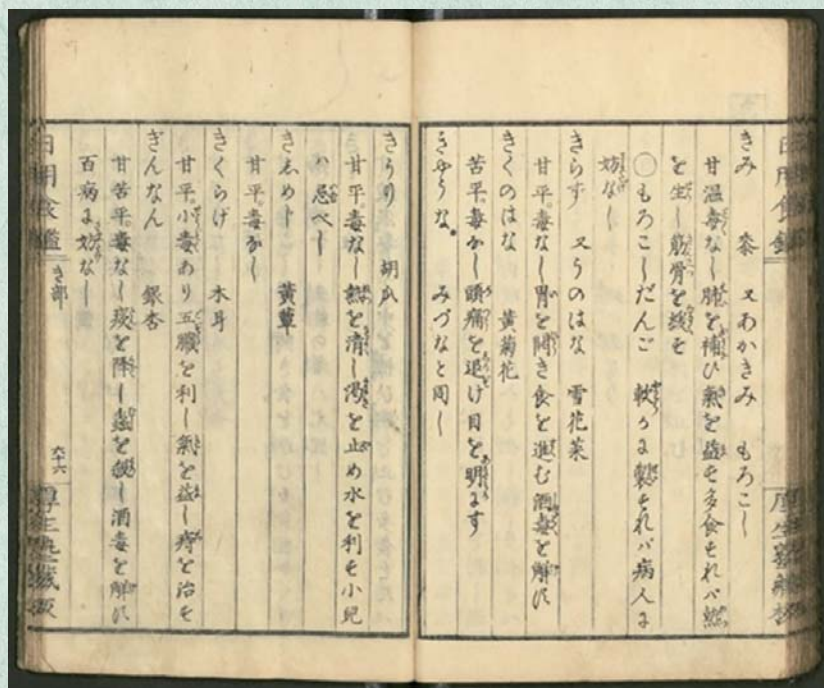 きみ 黍 又あかきみ もろこし
甘温毒なし脾を補ひ氣を益す多食すれバ熱
を生し筋骨を緩す
〇もろこしだんご 軟らかに製すれバ病人に
妨なし
きらず 又うのはな 雪花菜
甘平。毒なし胃を開き食を進む酒毒を解す
きくのはな 黄菊花
苦平。毒なし頭痛を退け目を明にす
みづなと同し
きうり 胡瓜
甘平。毒なし熱を清し渇を止め水を利す小児
ハ忌べし
きしめし 黄蕈
甘平。毒なし
きくらげ 木耳
甘平。小毒あり五臓を利し氣を益し痔を治す
ぎんなん 銀杏
甘苦平。毒なし痰を降し蟲を殺し酒毒を解す
百病に妨なし
日用食鑑 き部 六十六